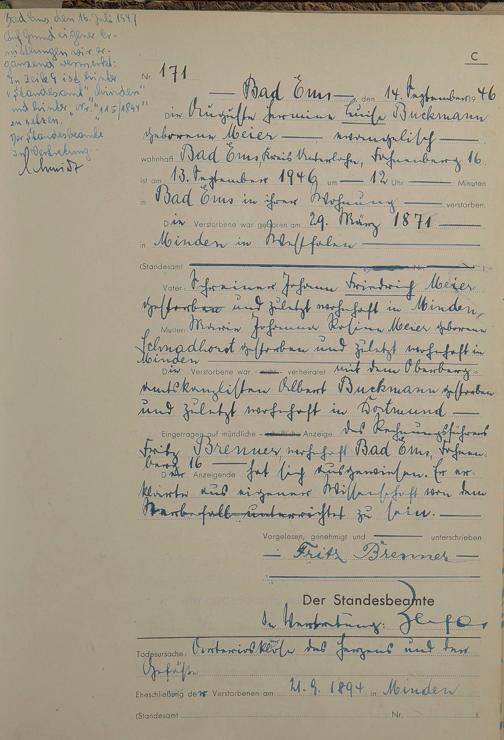 Bad Ems den 16. Juli 1947
Auf Grund eigener Er-
mittlungen wird er-
gänzend vermerkt:
In Zeile 9 ist hinter
"Standesamt" "Minden"
und hinter "Nr." "115/1871"
zu setzen.
Der Standesbeamte
In Vertretung
Schmidt
C
Nr. 171
Bad Ems den 14. September 1946
Die Auguste Hermine Luise Buckmann
geborene Meier — evangelisch —
wohnhaft Bad Ems, Kreis Unterlahn, 16
ist am 13. September 1946 um 12 Uhr Minuten
in Bad Ems in ihrer Wohnung verstorben.
Die Verstorbene war geboren am 29. März 1871
in Minden in Westfalen
(Standesamt Nr.
Vater: Schreiner Johann Friedrich Meier
gestorben und zuletzt wohnhaft in Minden,
Mutter: Marie Johanna Rosine Meier geborene
Schnadhorst gestorben und zuletzt wohnhaft in
Minden
Die Verstorbene war verheiratet mit dem Oberberg-
amtskanzlisten Albert Buckmann gestorben
und zuletzt wohnhaft in Dortmund
Eingetragen auf mündliche schriftliche Anzeige des Rechnungsführers
Fritz Brenner, wohnhaft Bad Ems,
berg 16
Der Anzeigende hat sich ausgewiesen. Er er-
klärte aus eigener Wissenschaft von dem
Sterbefall unterrichtet zu sein.
Vorgelesen, genehmigt und unterschrieben
Fritz Brenner
Der Standesbeamte
In Vertretung:
Todesursache: des Herzens und der
Gefäße
Eheschließung der Verstorbenen am 21.9.1894 in Minden
(Standesamt Nr. ).